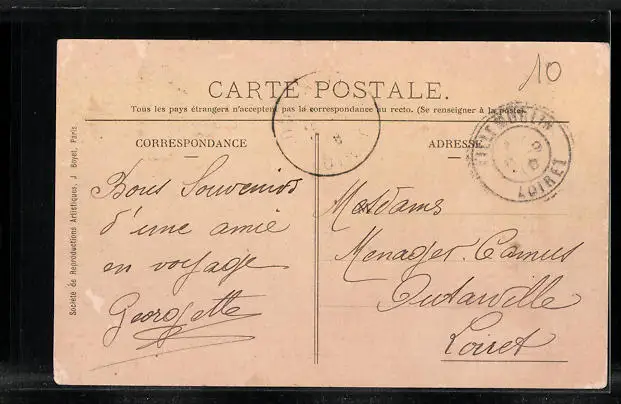 10
CARTE POSTALE.
Tous les pays étrangers n'acceptent pas la correspondance au recto. (Se renseigner à la poste).
CORRESPONDANCE
ADRESSE
LOIRET
Bons Souvenirs
d'une amie
en voyage
Georgette
Madame
Menager. Camus
Outarville
Loiret
Société de Reproductions Artistiques, J. Boyet, Paris